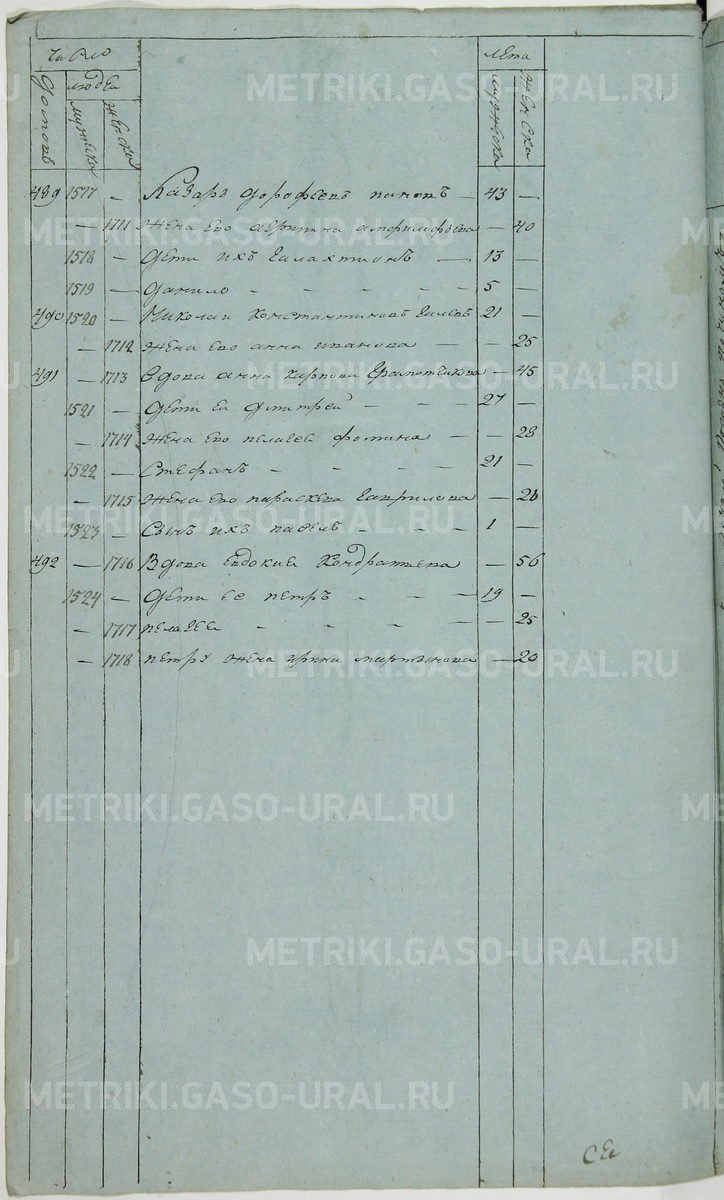 число лета
домовъ людеи мужеска женска мужеска женска
489 1517 — Лазарь дорофеевъ пановъ — 43 —
— 1711 жена ево акулина — 40
1518 — дети ихъ Галахтионъ — 13 —
1519 — данило — — — — 5 —
490 1520 — Николаи Константиновъ 21 —
— 1712 жена ево анна иванова — — 25
491 — 1713 вдова анна карпова — 45
1521 — дети ея дмитреи — — — 27 —
— 1714 жена ево пелагея фомина — — 28
1522 — Стефанъ — — — — 21 —
— 1715 жена ево параскева Гаврилова — 26
1523 — Сынъ ихъ павелъ — — — 1 —
492 — 1716 Вдова Евдокия Кондратьева — 56
1524 — дети ее петръ — — — 19 —
— 1717 пелагея — — — — — 25
— 1718 петра жена ирина мартынова — 20
METRIKI.GASO-URAL.RU